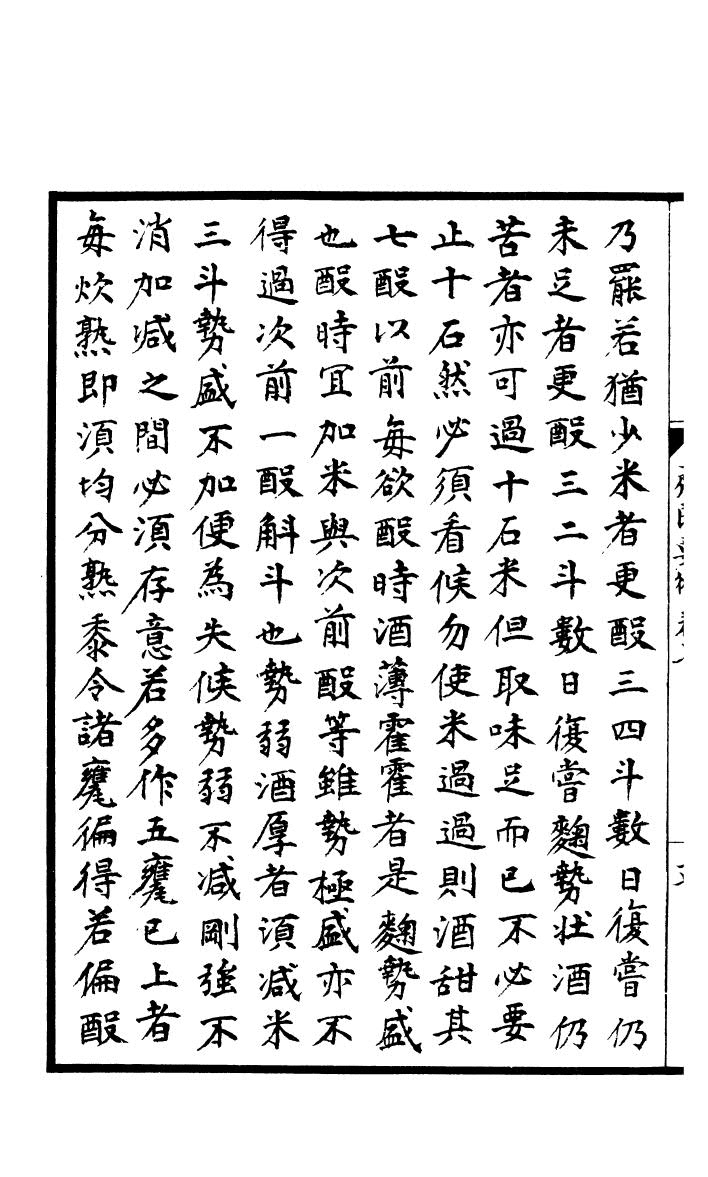 乃罷若猶少米者更酘三四斗數日復嘗仍
未足者更酘三二斗數日復嘗麴勢壯酒仍
苦者亦可過十石米但取味足而已不必要
止十石然必須看候勿使米過過則酒甜其
七酘以前每欲酘時酒薄霍霍者是麴勢盛
也酘時宜加米與次前酘等雖勢極盛亦不
得過次前一酘斛斗也勢弱酒厚者須减米
三斗勢盛不加便為失候勢弱不减剛強不
消加减之間必須存意若多作五甕已上者
每炊熟即須均分熟黍令諸甕徧得若偏酘